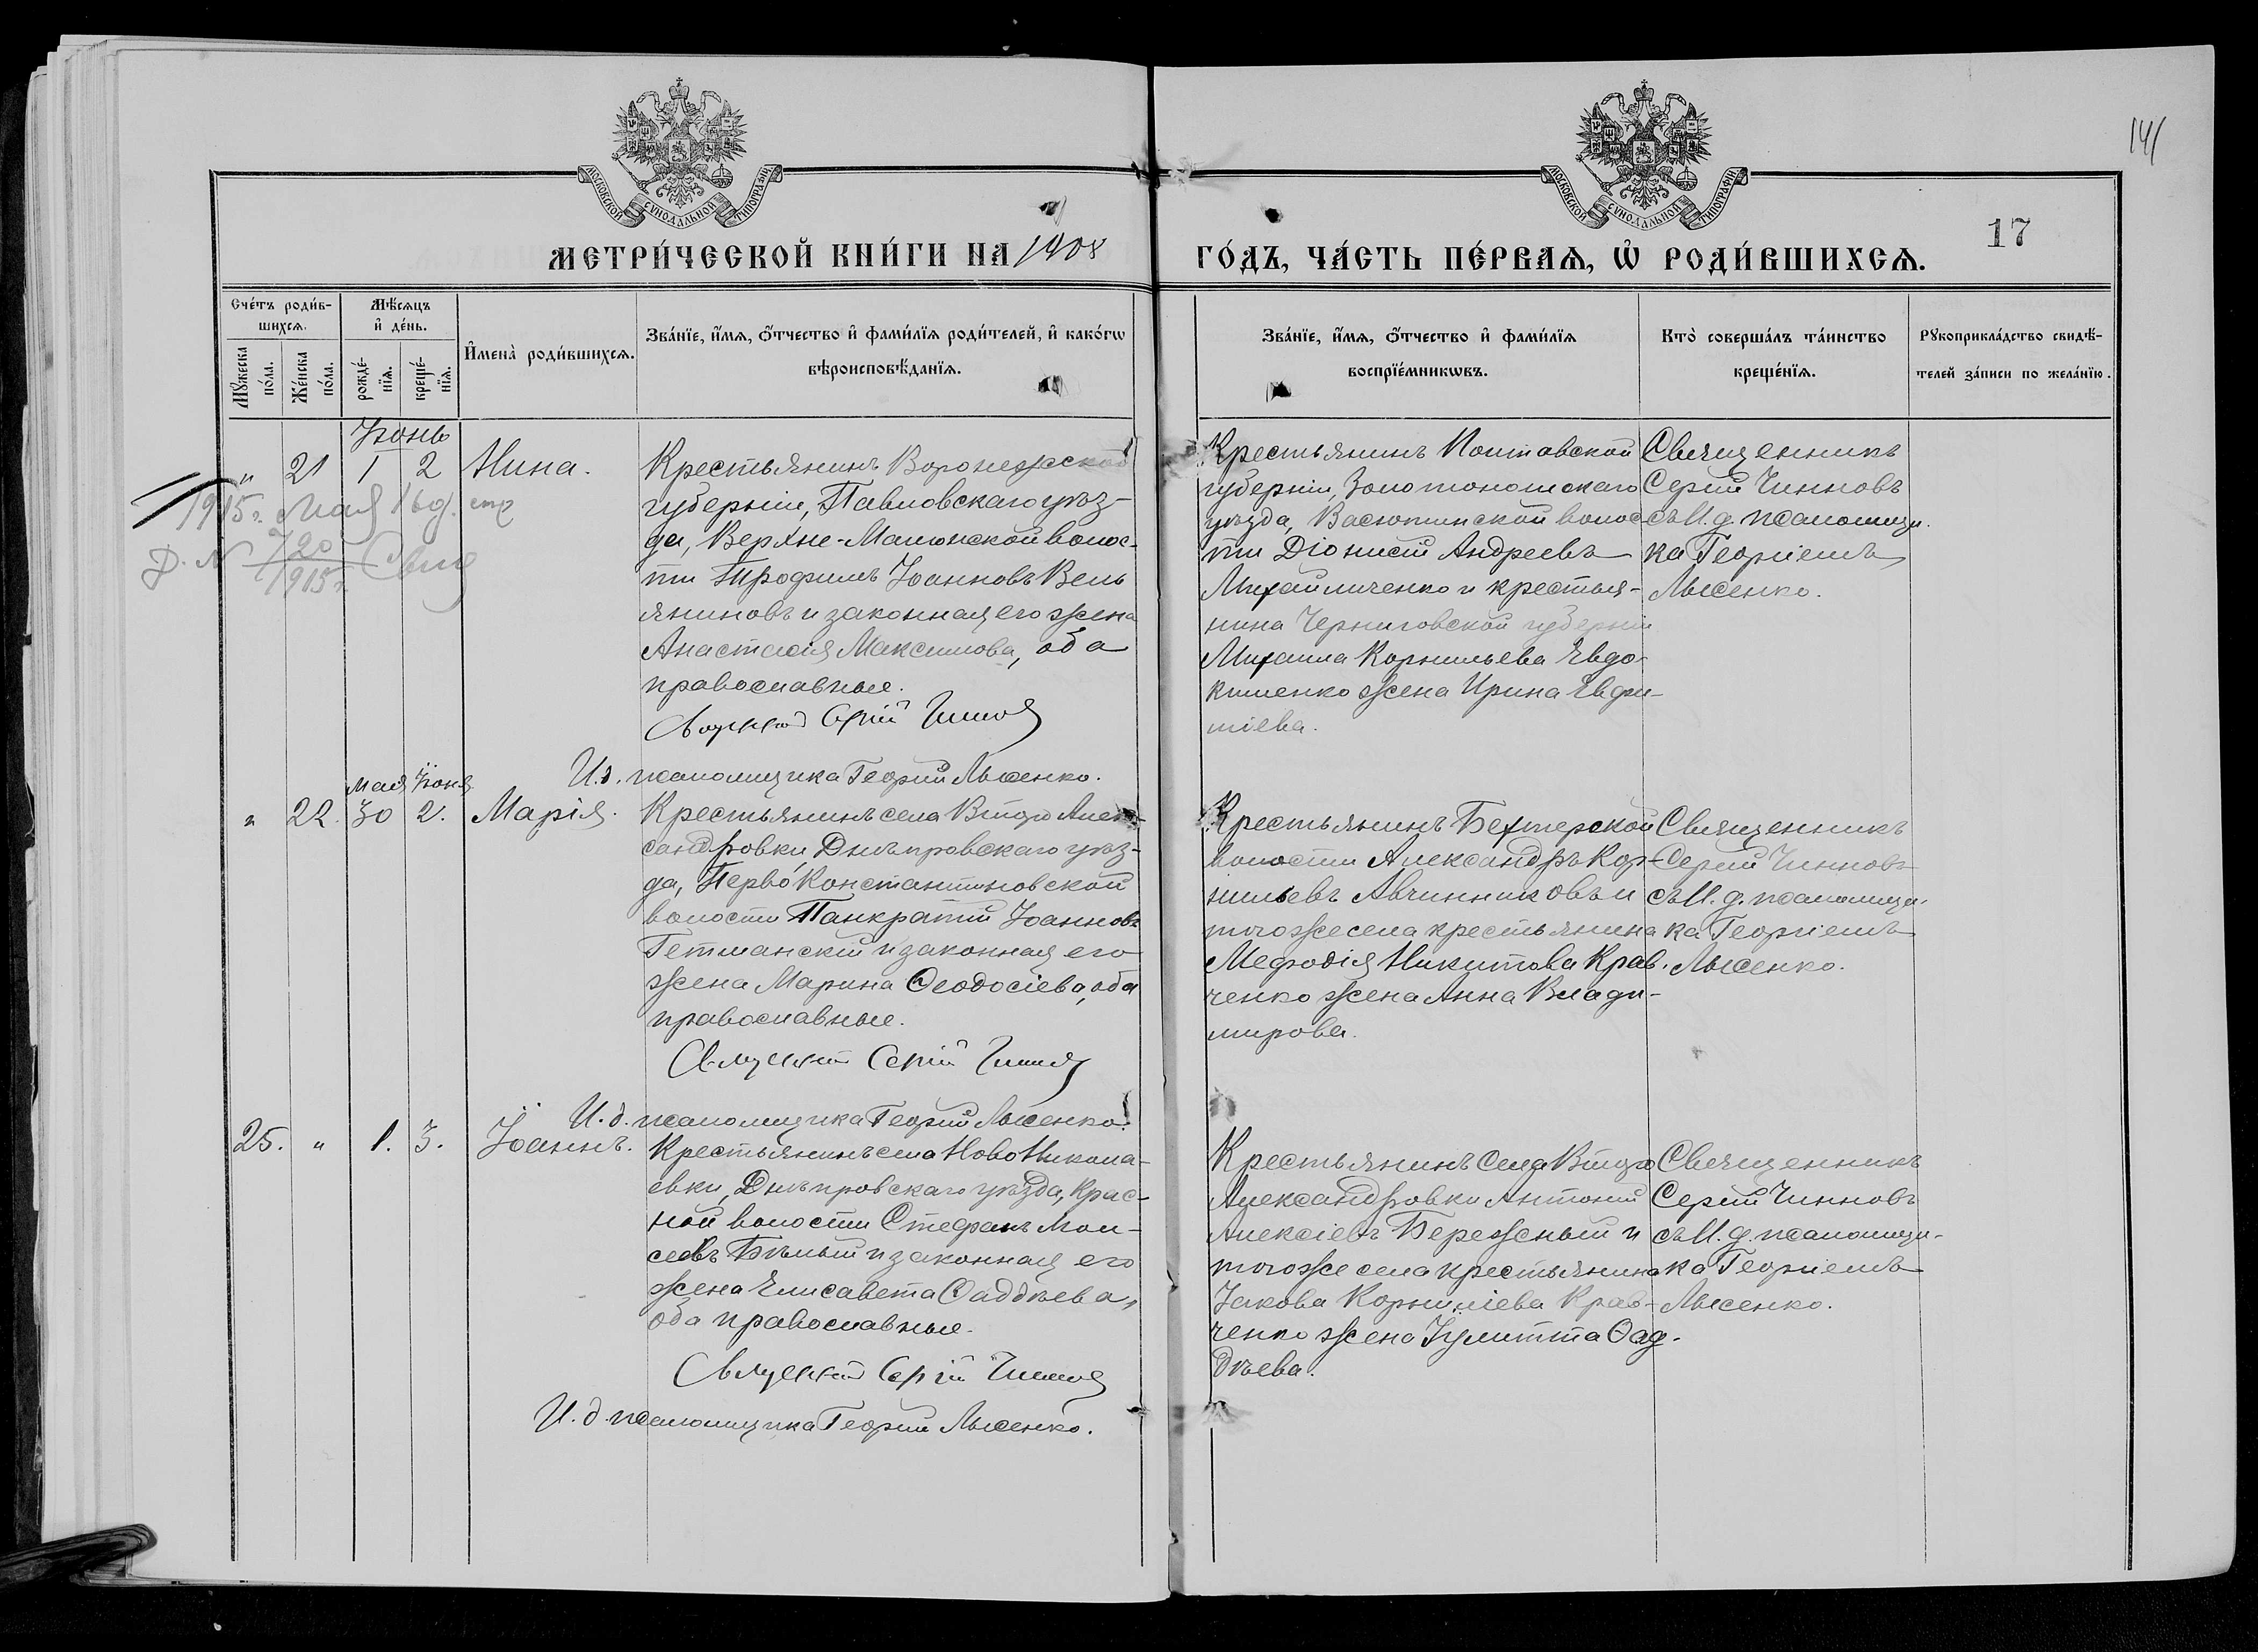 141
17
МОСКОВСКОЙ СѴНОДАЛЬНОЙ ТИПОГРАФІИ
МОСКОВСКОЙ СѴНОДАЛЬНОЙ ТИПОГРАФІИ
МЕТРИ́ЧЕСКОЙ КНИ́ГИ НА 1908
ГО́ДЪ, ЧА́СТЬ ПЕ́РВАѦ, Ѡ҆ РОДИ́ВШИХСѦ.
Сче́тъ роди́в-
шихсѧ.
Мѣ́сѧцъ
и҆ де́нь.
И҆мена̀ роди́вшихсѧ.
Зва́нїе, и҆́мѧ, ѻ҆́тчество и҆ фами́лїѧ роди́телей, и҆ како́гѡ
вѣроисповѣ́данїѧ.
Мꙋ́жеска
по́ла.
Же́нска
по́ла.
рожде́-
нїѧ.
креще́-
нїѧ.
Зва́нїе, и҆́мѧ, ѻ҆́тчество и҆ фами́лїѧ
воспрїе́мникѡвъ.
Кто̀ соверша́лъ та́инство
креще́нїѧ.
Рꙋкоприкла́дство свидѣ́-
телей за́писи по жела́нїю.
Іюнь
" 21 1 2 Нина.
Крестьянинъ Воронежской
губерніи, Павловскаго уѣз-
да, Верхне-Мамонской волос-
ти Трофимъ Іоанновъ Вель
яниновъ и законная его жена
Анастасія Максимова, оба
православные.
Священникъ Сергій Чинновъ
И.д. псаломщика Георгій Лысенко.
1915 г. Мая 16 д.
Д. N 720
1915 г.
Крестьянинъ Полтавской
губерніи, Золотоношскаго
уѣзда, Васютинской волос-
ти Діонисій Андреевъ
Михайличенко и крестья-
нина Черниговской губерніи
Михаила Корнильева Евдо-
кименко жена Ирина Евфи-
міева.
Священникъ
Сергій Чинновъ
съ И.д. псаломщи-
ка Георгіемъ
Лысенко.
Мая Іюня
" 22. 30 2. Марія.
Крестьянинъ села Второ Алек-
сандровки, Днѣпровскаго уѣз-
да, Перво Константиновской
волости Панкратій Іоанновъ
Гетманскій и законная его
жена Марина Ѳеодосіева, оба
православные.
Священникъ Сергій Чинновъ
И.д. псаломщика Георгій Лысенко.
Крестьянинъ Бехтерской
волости Александръ Кор-
нильевъ Авчинниковъ и
того же села крестьянина
Мефодія Никитова Крав-
ченко жена Анна Влади-
мирова.
Священникъ
Сергій Чинновъ
съ И.д. псаломщи-
ка Георгіемъ
Лысенко.
25. " 1. 3. Іоаннъ.
Крестьянинъ села Ново Никола-
евки, Днѣпровскаго уѣзда, Крас-
ной волости Стефанъ Мои-
сеевъ Бѣлый и законная его
жена Елисавета Ѳаддѣева,
оба православные.
Священникъ Сергій Чинновъ
И.д. псаломщика Георгій Лысенко.
Крестьянинъ села Второ
Александровки Антоній
Алексіевъ Бережный и
того же села крестьянина
Іакова Корниліева Крав-
ченко жена Іулитта Ѳад-
дѣева.
Священникъ
Сергій Чинновъ
съ И.д. псаломщи-
ка Георгіемъ
Лысенко.